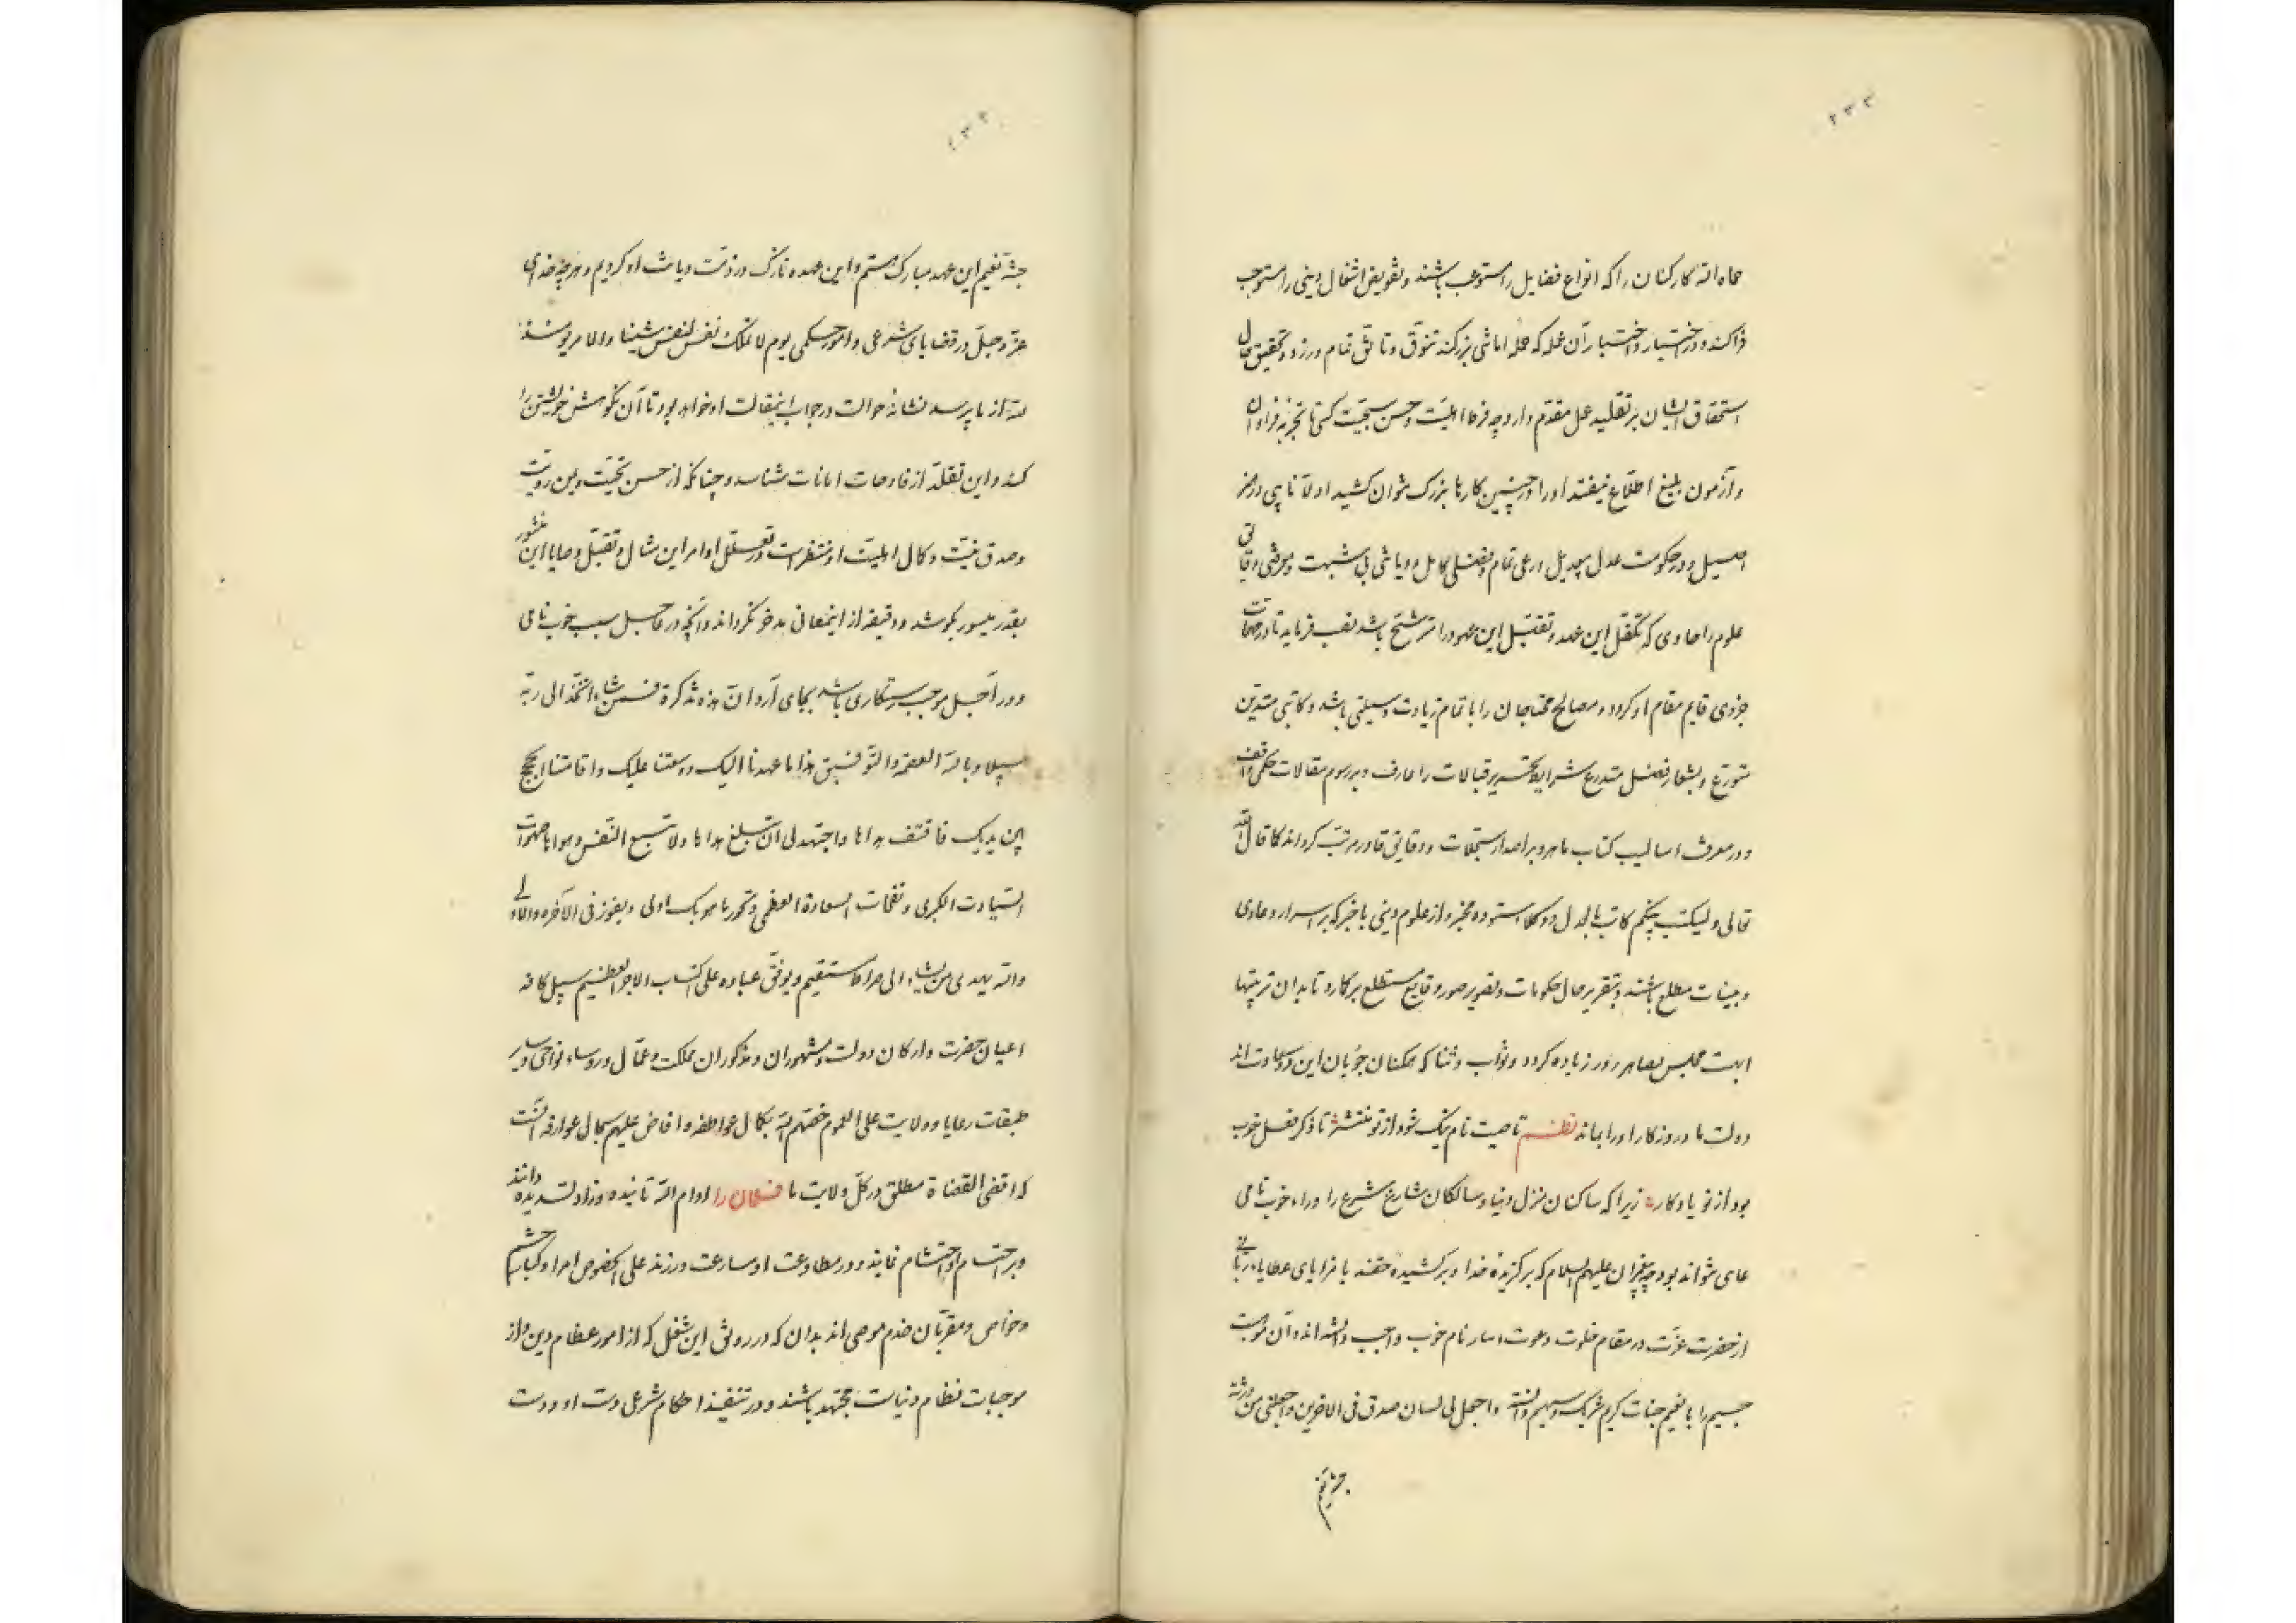 ۲۳۲
حماه الله کارکنان را که انواع فضایل را مستوعب باشند و تفویض اشغال دینی را مستوجب
فرا کند و در اختبار و اختیار آن عمله که حمله اماثل بزرگند تنوّق و تأنّق تمام ورزد و تحقیق حال
استحقاق ایشان بر تقلید عمل مقدّم دارد چه فرط اهلیّت و حسن سجیّت کسی تا تجربه فراوان
و آزمون بلیغ اطلاع نیفتد او را در چنین کارها بزرگ نتوان کشید اولا نایبی در
اصیل و در حکومت عدل بی‌بدیل ورعی تمام و فضلی کامل و دیانتی بی شبهت و
علوم را حاوی که تکفّل این عهد و تقبّل این عهود را مترشّح باشد نصب فرماید تا در مهمات
جزوی قایم مقام او گردد و مصالح محتاجان را با تمام زیادت وسیلتی باشد و کاتبی متدیّن
متورّع و بشعار فضل متدرع شرایط تحریر قبالات را عارف و برسوم مقالات حکمی واقف
و در معرفت اسالیب کتاب ماهر و بر اصدار سجلات و وقایق قادر مرتب گرداند کما قال الله
تعالی و لیکتب بینکم کاتب بالعدل و وکلا ستوده مخبر و از علوم دینی باخبر که بر اسرار دعاوی
و بینات مطلع باشند و بتقریر حال حکومات و تصویر صور وقایع مستطلع برکارد تا بدان ترتیبها
ابهت مجلس قضا هر روز زیاده گردد و ثواب و ثنا که ممکنان جویان این دو سعادت اند
دولت ما و روزگار او را بماند نظم تا صیت نام نیک شود از تو منتشر تا ذکر فعل خوب
بود از تو یادگار زیرا که ساکنان منزل دنیا و سالکان شارع شرع را وراء خوب نامی
عامی نتواند بود چه پیغمبران علیهم السلام که برگزیده خدا و برکشیده حقند با مزایای عطایاء ربانی
از حضرت عزت در مقام خلوت دعوت اسار نام خوب واجب دانسته‌اند و آن موهبت
جسیم را با نعیم جنات کریم شریک و سهیم دانسته و اجعل لی لسان صدق فی الآخرین و اجعلنی من ورثة
جنة نعیم
جنة نعیم این عهد مبارک بستیم و این عهده نازک در ذمت دیانت او کردیم و هرچه خدای
عزّ و جلّ در قضایای شرعی و امور حکمی یوم لا تملک نفس لنفس شیئا والامر یومئذ
لله از ما پرسد نشانه حوالت در جواب این مقالت او خواهد بود تا آن نکوهش خویشتن را
کند و این تقلّد از فادحات امانات شناسد و چنانکه از حسن تحیّت و یمن رویّت
و صدق نیّت و کمال اهلیّت او منتظرست در تعقّل اوامر این مثال و تقبّل وصایا این منشور
بقدر میسور بکوشد و دقیقه از این معانی مدخر نگرداند و آنچه در عاجل سبب خوب نامی
و در آجل موجب رستگاری باشد بجای آرد ان هذه تذکرة فمن شاء اتّخذ الی ربّه
سبیلا و بالله العصمة والتّوفیق هذا ما عهدنا الیک ووسعنا علیک و اقامتنا الحجج
بین یدیک فاقتف هداها و اجتهد لی ان تبلغ مداها ولا تتبع النّفس و هواها
السّیادت الکبری و نفحات السعادة العظمی و تحوز ما هو بک اولی و یفوز فی الآخرة والاولی
والله یهدی من یشاء الی صراط مستقیم و یوفّق عباده علی اکتساب الاجر العظیم سبیل کافه
اعیان حضرت و ارکان دولت و مشهوران و مذکوران مملکت و عمّال و روساء نواحی و سایر
طبقات رعایا و ولایت علی العموم خصّهم الله بکمال عواطفه و افاض علیهم سجال عوارفه آنست
که اقضی القضاة مطلق در کلّ ولایت ما فلان را ادام الله تائیده و زاد تسدیده دانند
و بر احترام و احتشام نمایند و در مطاوعت او مسارعت ورزند علی الخصوص امرا و کبار حشم
و خواص و مقربّان خدم موصی اند بدان که در رونق این شغل که از امور عظام دین و از
موجبات نظام دنیاست مجتهد باشند و در تنفیذ احکام شرعی دست او و دست